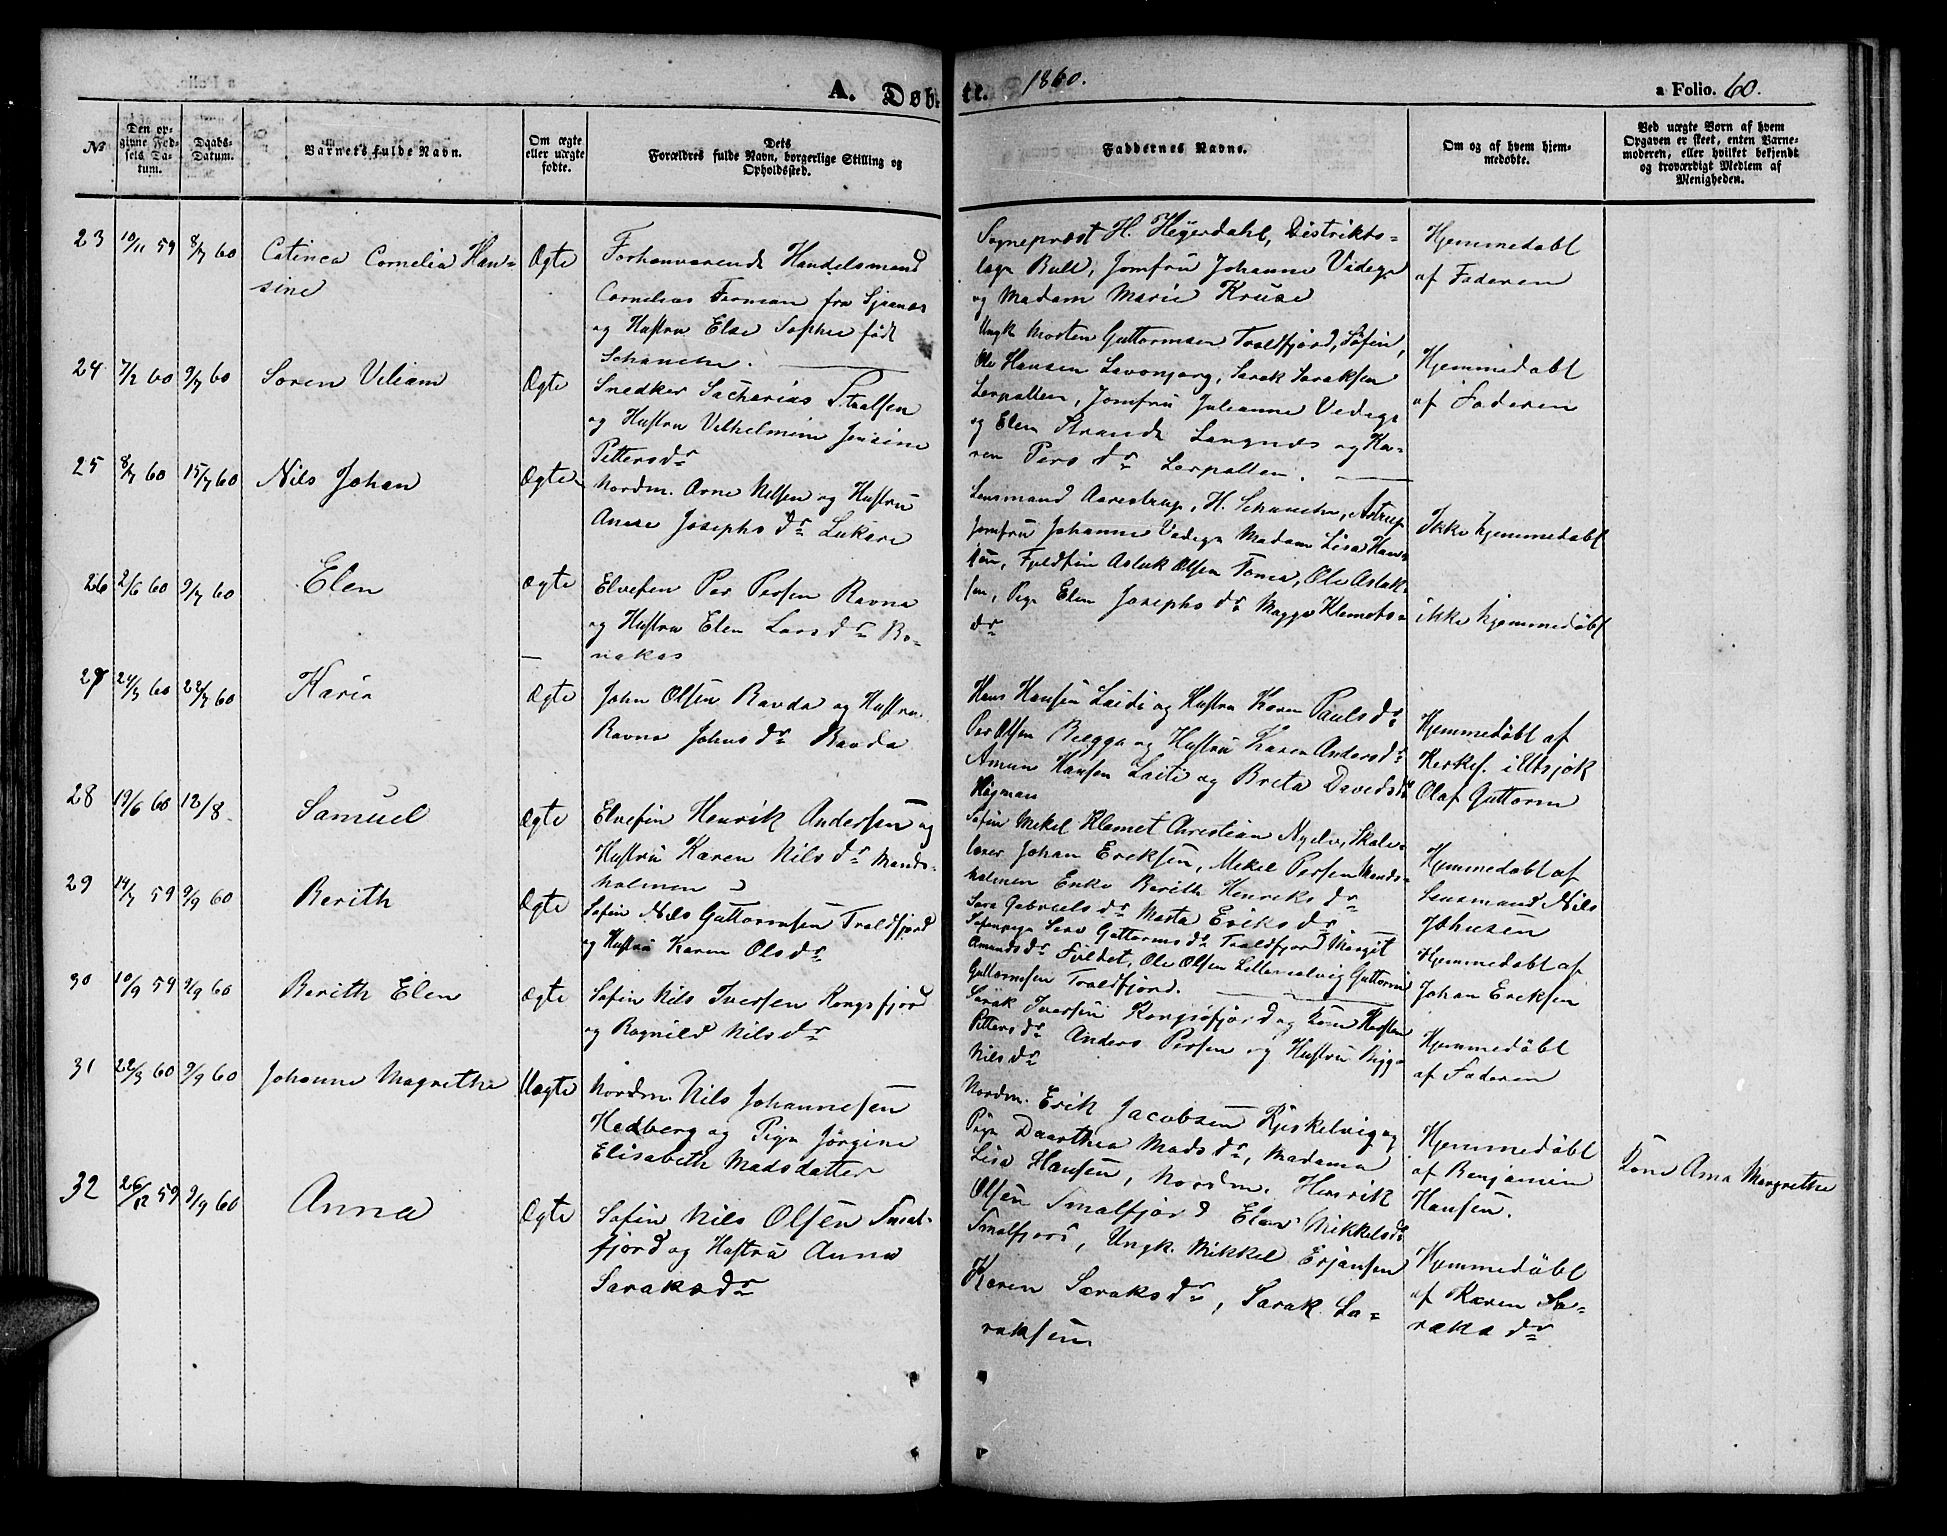 A. Døb-
te. 1860.
a Folio. 60.
№
Den op-
givne Fød-
sels Da-
tum.
Daabs-
Datum.
Barnets fulde Navn.
Om ægte
eller uægte
fødte.
Dets
Forældres fulde Navn, borgerlige Stilling og
Opholdssted.
Faddernes Navne.
Om og af hvem hjem-
medøbte.
Ved uægte Børn af hvem
Opgaven er skeet, enten Barne-
moderen, eller hvilket bekjendt
og troværdigt Medlem af
Menigheden.
23 10/11 59 8/7 60 Catinca Cornelia Han-
sine
Ægte
Forhenværende Handelsmand
Cornelius Forman fra
og Hustru Else Sophie född
Schanche.
Sognepræst H. Heyerdahl, Distrikts-
læge Bull, Jomfru Johanne Vadege
og Madam Marie Kruse
Hjemmedøbt
af Faderen
24 7/2 60 9/7 60 Søren Viliam
Ægte
Snedker Sacharias
og Hustru Vilhelmine Jensine
Petersdr
Ungk Morten Guttormsen Troldfjord, Søfin,
Ole Hansen Lavonjarg, Sarak Saraksen
Lerpollen, Jomfru Julianne Vadege
og Elen Strande Langnes og Ka-
ren Persdr Lerpollen.
Hjemmedøbt
af Faderen
25 8/7 60 15/7 60 Nils Johan
Ægte
Nordm. Arne Nilsen og Hustru
Anese Josephsdr Lukare
Lensmand Aarestrup, H. Schanche, Astrup
Jomfru Johanne Vadege Madam Lisa Han-
sen, Fjeldfin Aslak Olsen Tomes, Ole Aslak-
Ikke hjemmedøbt
26 2/6 60 9/7 60 Elen
Ægte
Elvefin Per Persen Ravna
og Hustru Elen Larsdr Bo-
nakas
sen, Pige Elen Josephsdr Magga Klemets-
dr
ikke hjemmedøbt
27 24/3 60 22/7 60 Karin
Ægte
John Olsen Ravda og Hustru
Ravna Johnsdr Bavda
Hans Hansen Laiti og Hustru Karen Paulsdr
Per Olsen Biegga og Hustru Karen Andersdr
Amun Hansen Laiti og Brita Davidsdr
Högman
Hjemmedøbt af
Kirkes. i Utsjok
Olaf Guttorm
28 19/6 60 12/8 Samuel
Ægte
Elvefin Henrik Andersen og
Hustru Karen Nilsdr Mands-
holmen
Søfin Mikel Klemet Christian Nyelv, Skole-
lærer Johan Ereksen, Mikel Persen Mands-
holmen Enke Berith Henriksdr
Sara Gabrielsdr Marta Eriksdr
Hjemmedøbt af
Lensmand Nils
Johnsen
29 14/7 59 9/9 60 Berith
Ægte
Søfin Nils Guttormsen Troldfjord
og Hustru Karen Olsdr
Søfinpige Sara Guttormsdr Troldfjord Margit
Amundsdr Fuldet, Ole Olsen Lillemolvig Guttorm
Guttormsen Troldfjord.
Hjemmedøbt af
Johan Ereksen
30 10/9 59 9/9 60 Berith Elen
Ægte
Søfin Nils Iversen Kongsfjord
og Ragnild Nilsdr
Sarak Iversen Kongsøfjord og Kone Kirsten
Pittersdr Anders Persen og Hustru Bigga
Nilsdr
Hjemmedøbt
af Faderen
31 22/3 60 9/9 60 Johanne Magrethe
Uægte
Nordm. Nils Johannesen
Hedberg og Pige Jörgine
Elisabeth Madsdatter
Nordm. Erik Jacobsen Kjeskelvig og
Pige Daarthea Madsdr, Madama
Lisa Hansen, Nordm. Henrik
Hjemmedøbt
af Benjamin
Hansen.
Kone Ana Margrethe
32 26/12 59 9/9 60 Anna
Ægte
Søfin Nils Olsen Smal-
fjord og Hustru Anna
Saraksdr
Olsen Smalfjord Elen Mikkelsdr
Smalfjord, Ungk. Mikkel Erjansen
Karen Saraksdr, Sarak Sa-
raksen.
Hjemmedøbt
af Karen Sa-
raksdr